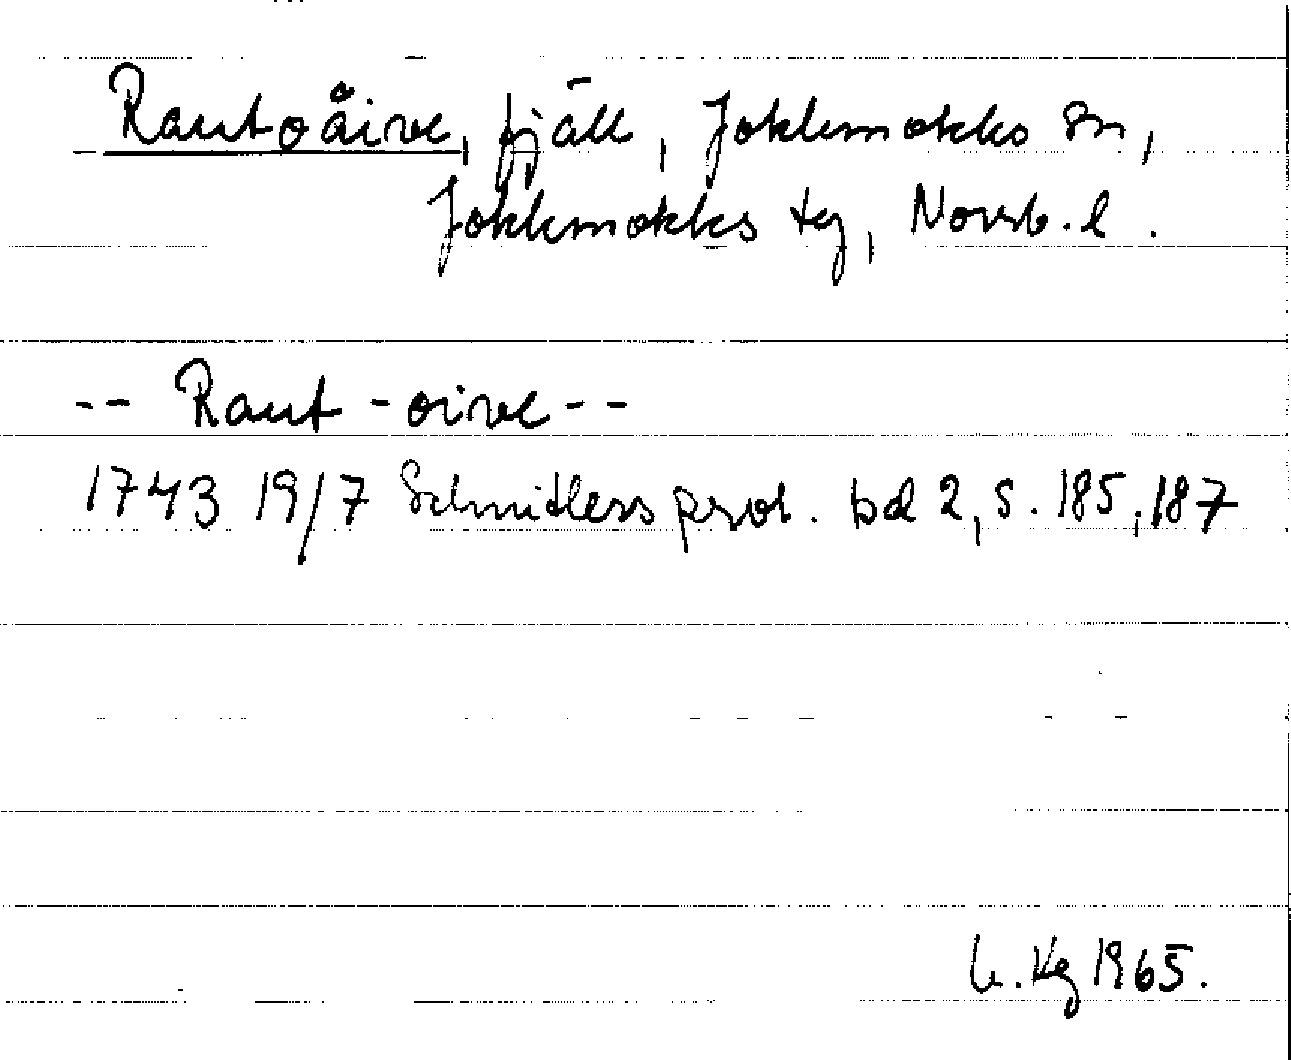 Rautoåive, fjäll, Jokkmokks sn,
Jokkmokks tg, Norrb. l.
-- Raut-oive--
1743 19/7 Schnitlers prot. bd 2, s. 185, 187
Kg 1965.